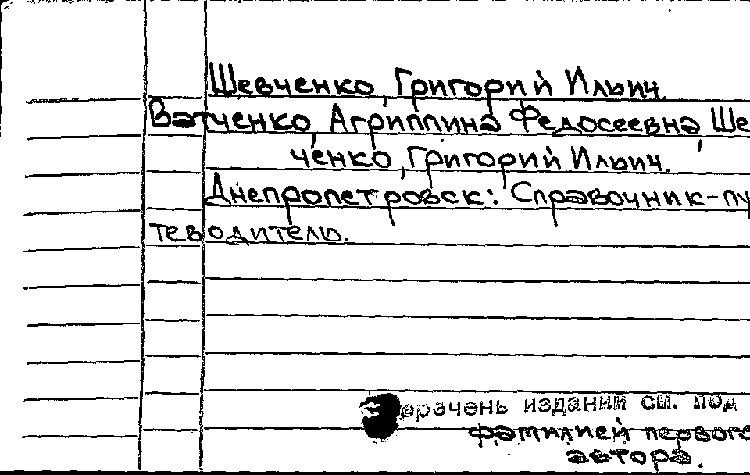 Шевченко, Григорий Ильич.
Ватченко, Агриппина Федосеевна, Ше
ченко, Григорий Ильич.
Днепропетровск: Справочник-пу
теводитель.
изданий см. под
фамилией первого
автора.